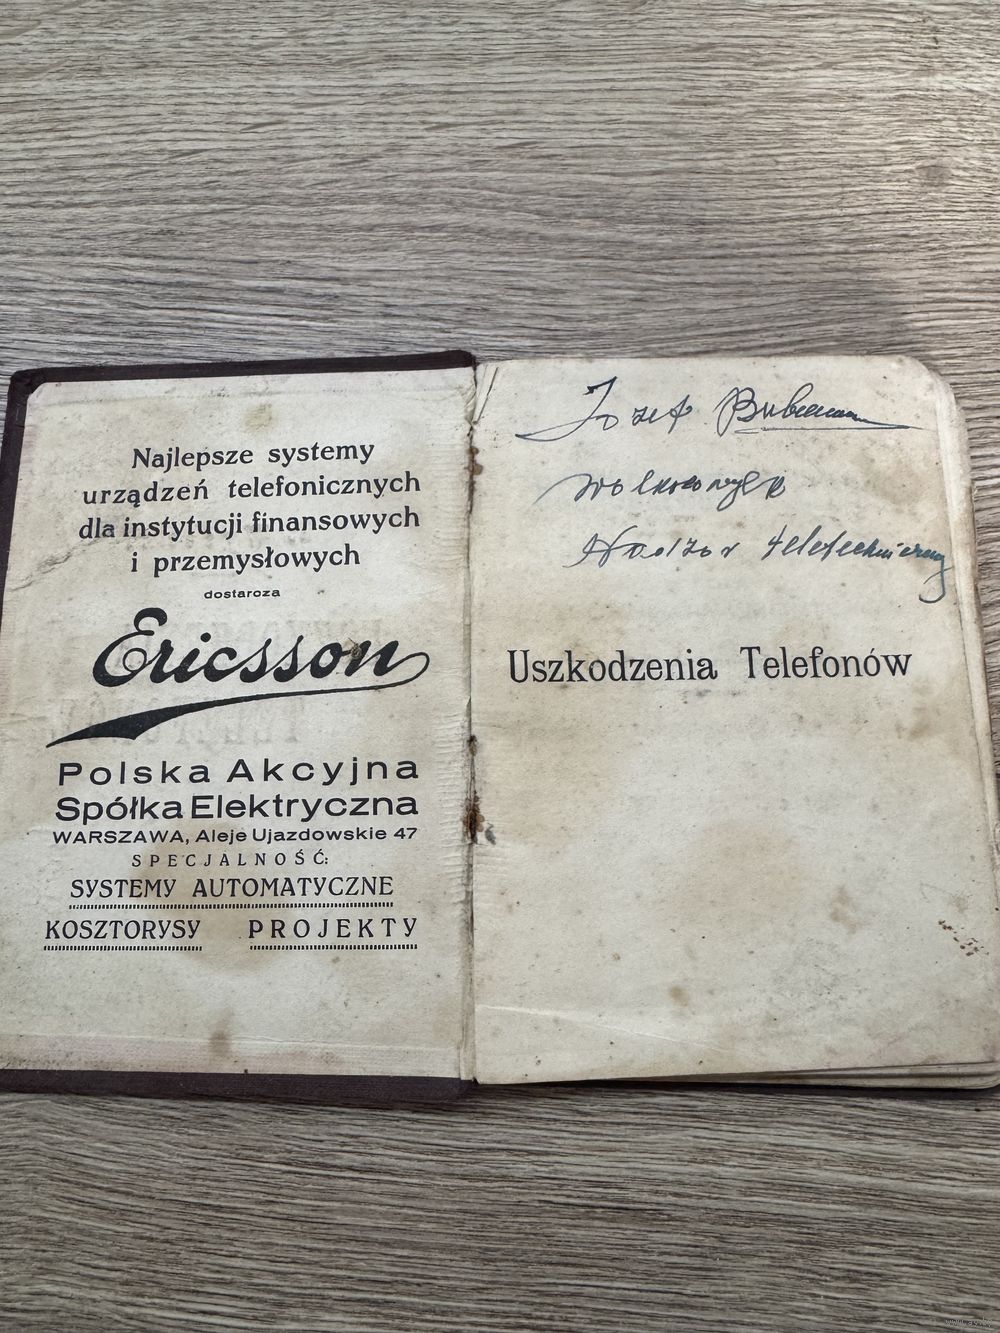 Najlepsze systemy
urządzeń telefonicznych
dla instytucji finansowych
i przemysłowych
dostarcza
Ericsson
Polska Akcyjna
Spółka Elektryczna
WARSZAWA, Aleje Ujazdowskie 47
SPECJALNOŚĆ:
SYSTEMY AUTOMATYCZNE
KOSZTORYSY PROJEKTY
Józef
Wołkowysk
Nadzór teletechniczny
Uszkodzenia Telefonów